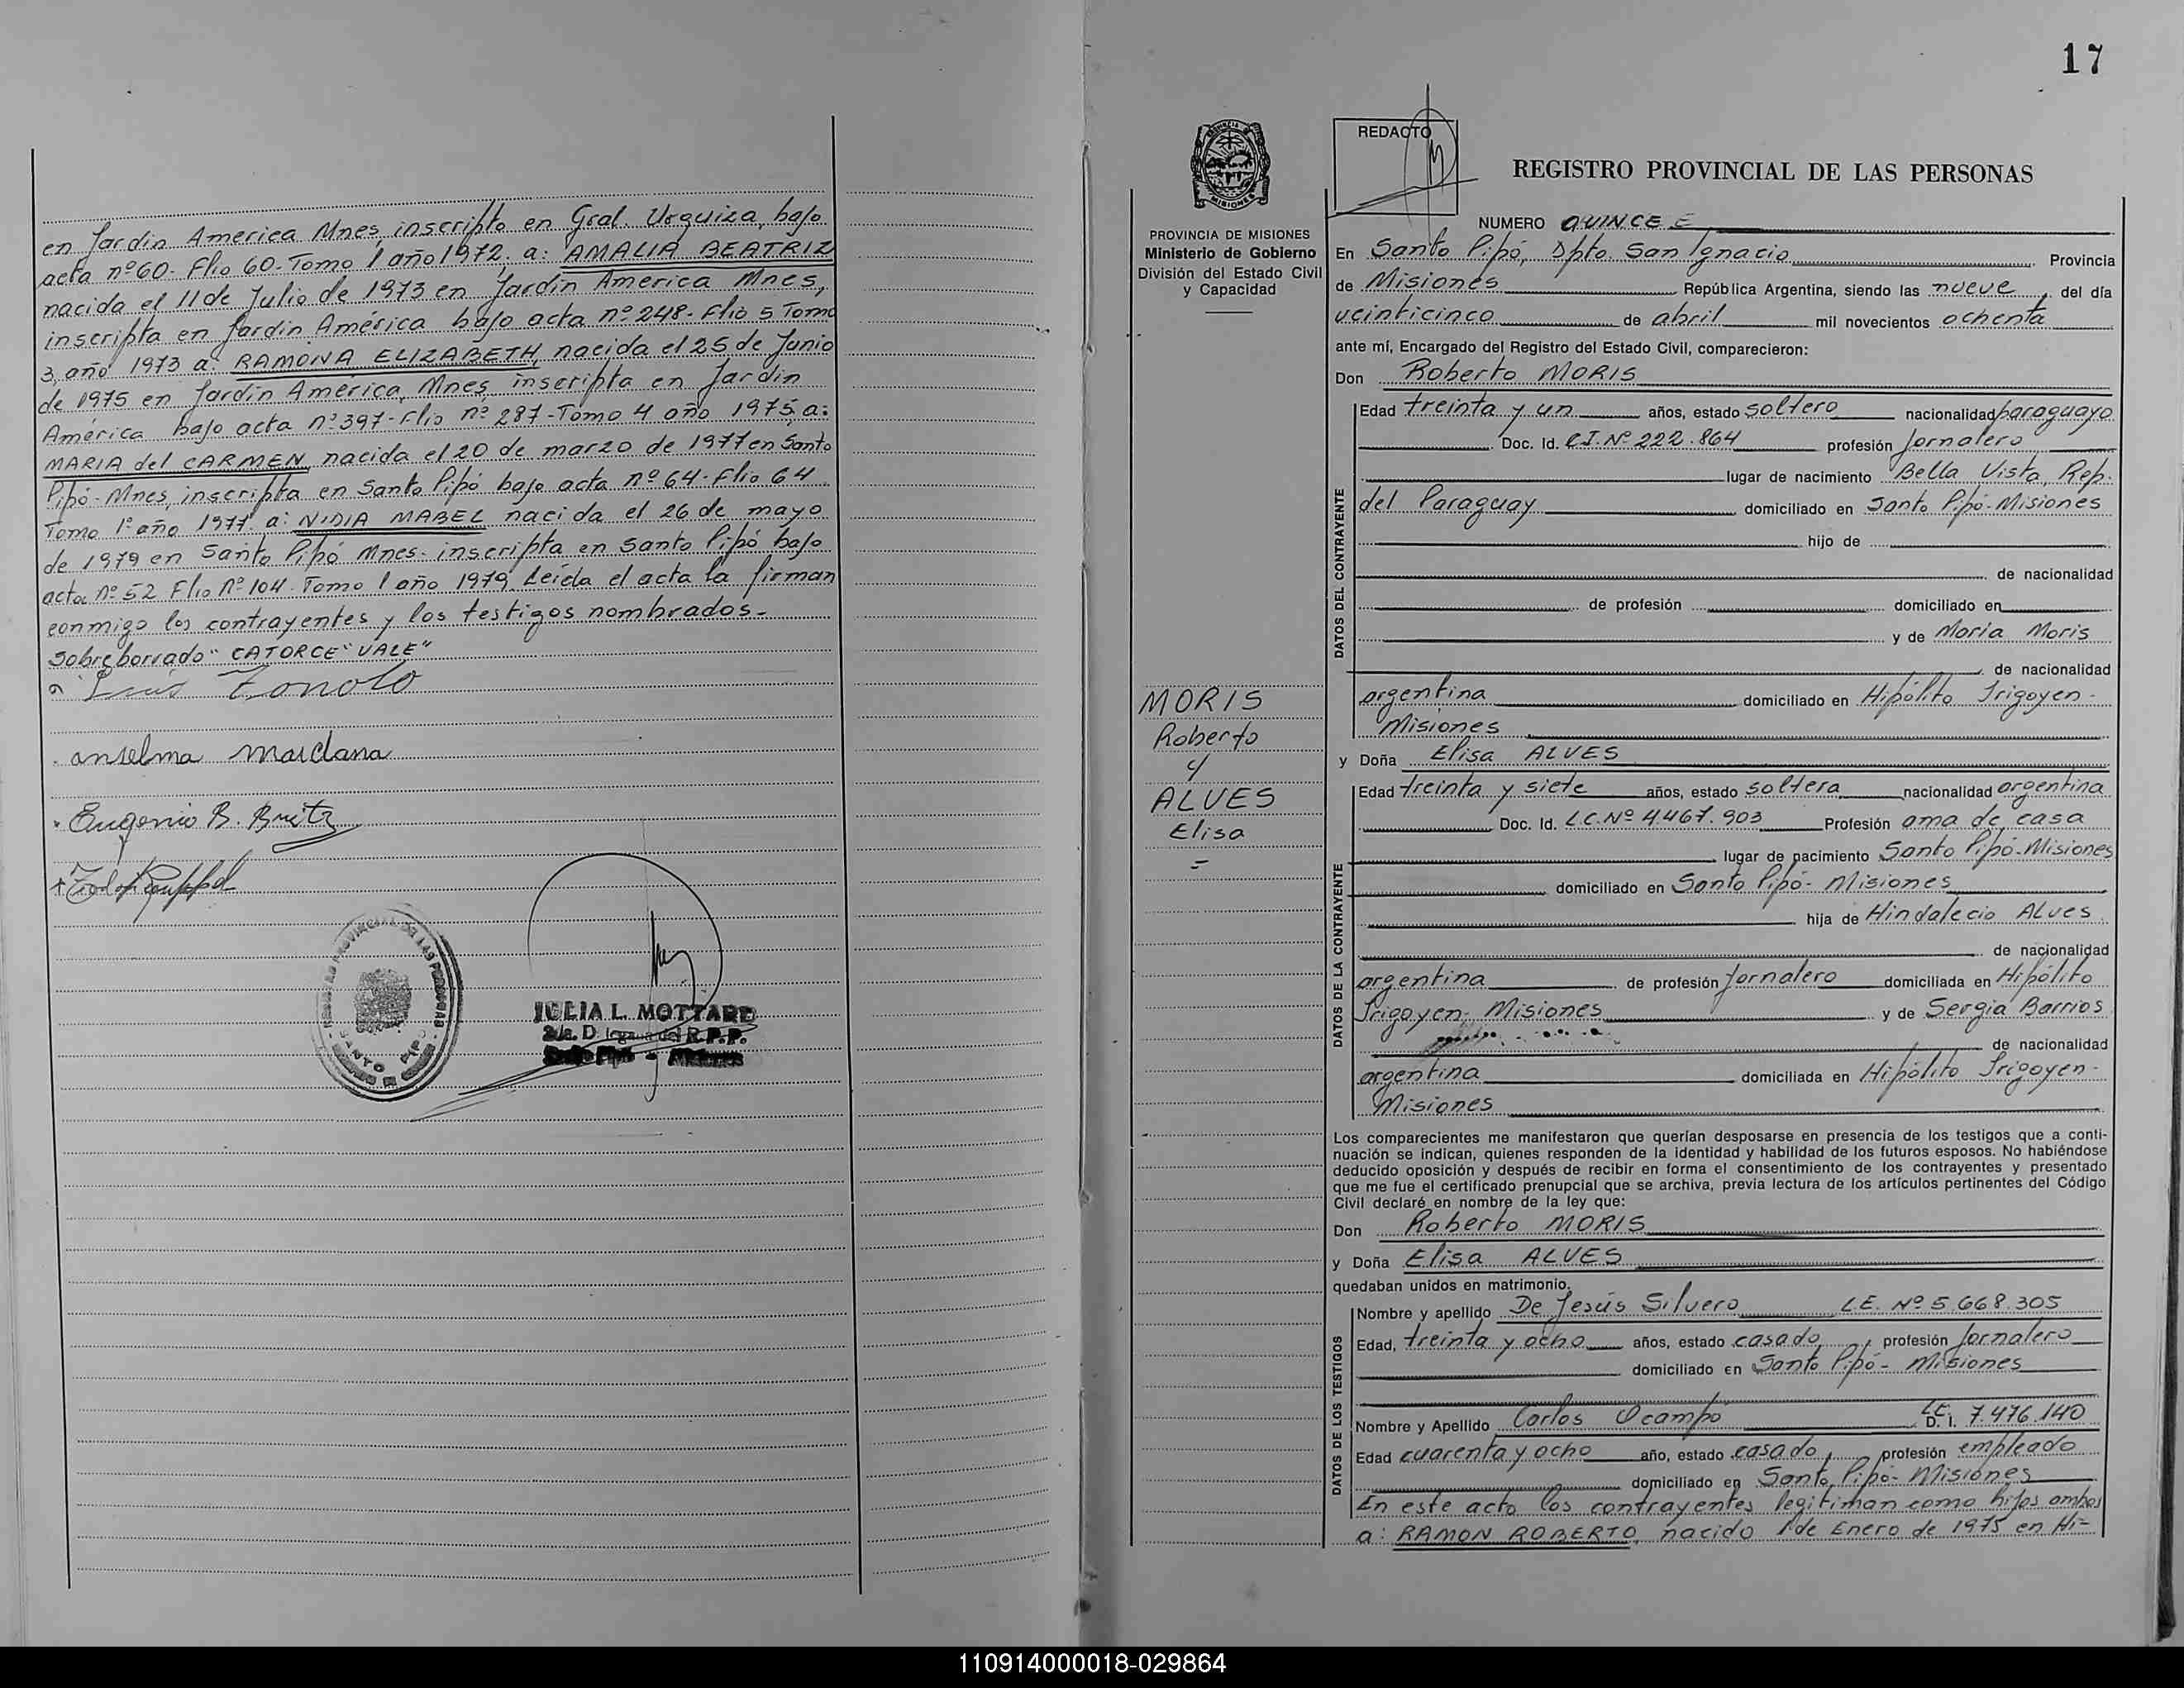 en Jardin America Mnes, inscripto en Gral. Urquiza, bajo
acta nº 60- Flio 60- Tomo 1 año 1972. a: AMALIA BEATRIZ
nacida el 11 de Julio de 1973 en Jardin America Mnes,
inscripta en Jardin América bajo acta nº 248- Flio 5 Tomo
3, año 1973 a: RAMONA ELIZABETH, nacida el 25 de Junio
de 1975 en Jardin America, Mnes, inscripta en Jardin
América bajo acta nº 397- Flio nº 287- Tomo 4 año 1975. a:
MARIA del CARMEN nacida el 20 de marzo de 1977 en Santo
Pipó- Mnes, inscripta en Santo Pipó bajo acta nº 64- Flio 64
Tomo 1º año 1977. a: NIDIA MABEL nacida el 26 de mayo
de 1979 en Santo Pipó Mnes- inscripta en Santo Pipó bajo
acta nº 52 Flio Nº 104- Tomo 1 año 1979. Leída el acta la firman
conmigo los contrayentes y los testigos nombrados-
Sobreborrado "CATORCE" VALE"
Luis
anselma maidana
Eugenio B. Britz
JULIA L. MOTTARD
R.P.P.
SANTO PIPO
17
REDACTO
REGISTRO PROVINCIAL DE LAS PERSONAS
PROVINCIA DE MISIONES
Ministerio de Gobierno
División del Estado Civil
y Capacidad
MORIS
Roberto
y
ALVES
Elisa
=
NUMERO QUINCE E
En Santo Pipó, Dpto. San Ignacio Provincia
de Misiones República Argentina, siendo las nueve del día
veinticinco de abril mil novecientos ochenta
ante mí, Encargado del Registro del Estado Civil, comparecieron:
Don Roberto MORIS
DATOS DEL CONTRAYENTE
Edad treinta y un años, estado soltero nacionalidad paraguayo
Doc. Id. C.I. Nº 222.864 profesión Jornalero
lugar de nacimiento Bella Vista, Rep.
del Paraguay domiciliado en Santo Pipó- Misiones
hijo de
de nacionalidad
de profesión domiciliado en
y de Maria Moris
de nacionalidad
argentina domiciliado en Hipólito Irigoyen-
Misiones
y Doña Elisa ALVES
DATOS DE LA CONTRAYENTE
Edad treinta y siete años, estado soltera nacionalidad argentina
Doc. Id. L.C. Nº 4.467.903 Profesión ama de casa
lugar de nacimiento Santo Pipó- Misiones
domiciliado en Santo Pipó- Misiones
hija de Hindalecio Alves
de nacionalidad
argentina de profesión Jornalero domiciliada en Hipólito
Irigoyen- Misiones y de Sergia Barrios
de nacionalidad
argentina domiciliada en Hipólito Irigoyen-
Misiones
Los comparecientes me manifestaron que querían desposarse en presencia de los testigos que a conti-
nuación se indican, quienes responden de la identidad y habilidad de los futuros esposos. No habiéndose
deducido oposición y después de recibir en forma el consentimiento de los contrayentes y presentado
que me fue el certificado prenupcial que se archiva, previa lectura de los artículos pertinentes del Código
Civil declaré en nombre de la ley que:
Don Roberto MORIS
y Doña Elisa ALVES
quedaban unidos en matrimonio.
DATOS DE LOS TESTIGOS
Nombre y apellido De Jesús Silvero L.E. Nº 5.668.305
Edad, treinta y ocho años, estado casado profesión Jornalero
domiciliado en Santo Pipó- Misiones
Nombre y Apellido Carlos Ocampo L.E. D. I. 7.476.140
Edad cuarenta y ocho año, estado casado profesión empleado
domiciliado en Santo Pipó- Misiones
En este acto los contrayentes legitiman como hijos ambos
a: RAMON ROBERTO, nacido 1 de Enero de 1975 en Hi-
110914000018-029864